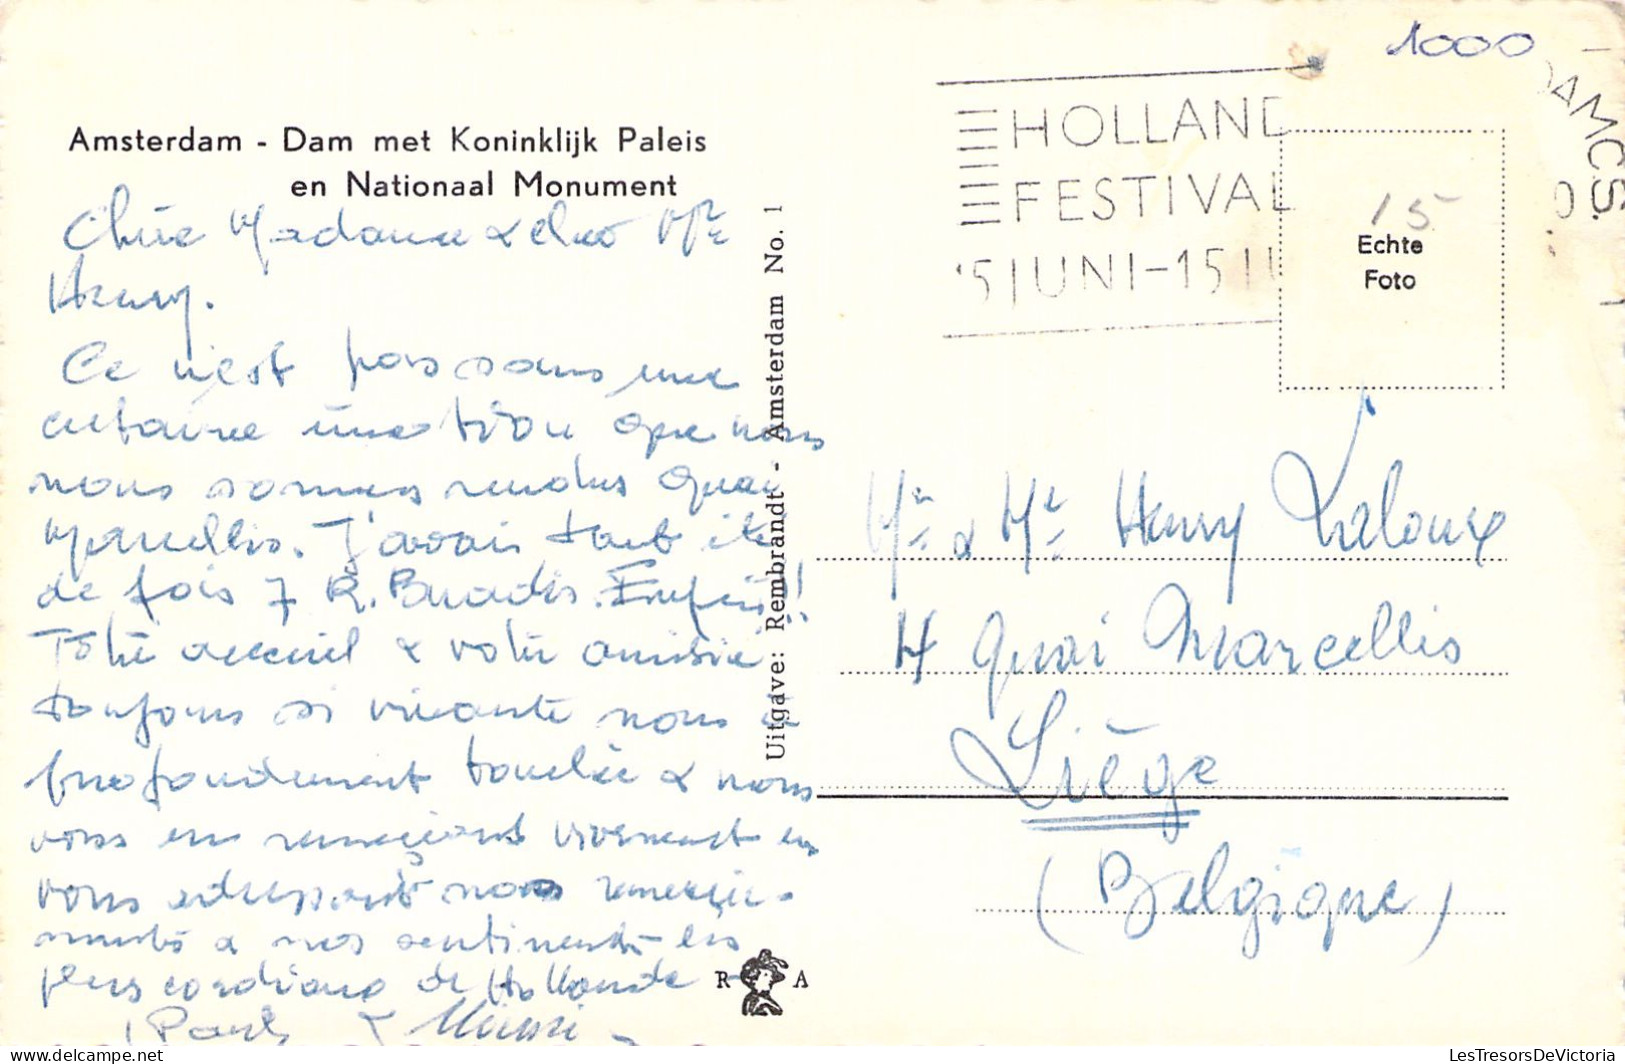 1000
AMC.S.
HOLLAND
FESTIVAL
15 JUNI-15 JU
15
Echte
Foto
Amsterdam - Dam met Koninklijk Paleis
en Nationaal Monument
Chère Madame & cher Mr
Henry.
Ce n'est pas sans une
certaine émotion que nous
nous sommes rendus Quai
Marcellis. J'avais tant été
de fois 7 R. Enfin!!
Votre accueil & votre amitié
toujours si vivante nous a
profondément touchée & nous
vous en remercions vivement en
vous adressant nos remercie-
ments & nos sentiments les
plus cordiaux de Hollande
Uitgave: Rembrandt - Amsterdam No. 1
R A
Mr & Me Henry Laloux
4 Quai Marcellis
Liège
(Belgique)
LesTresorsDeVictoria
delcampe.net